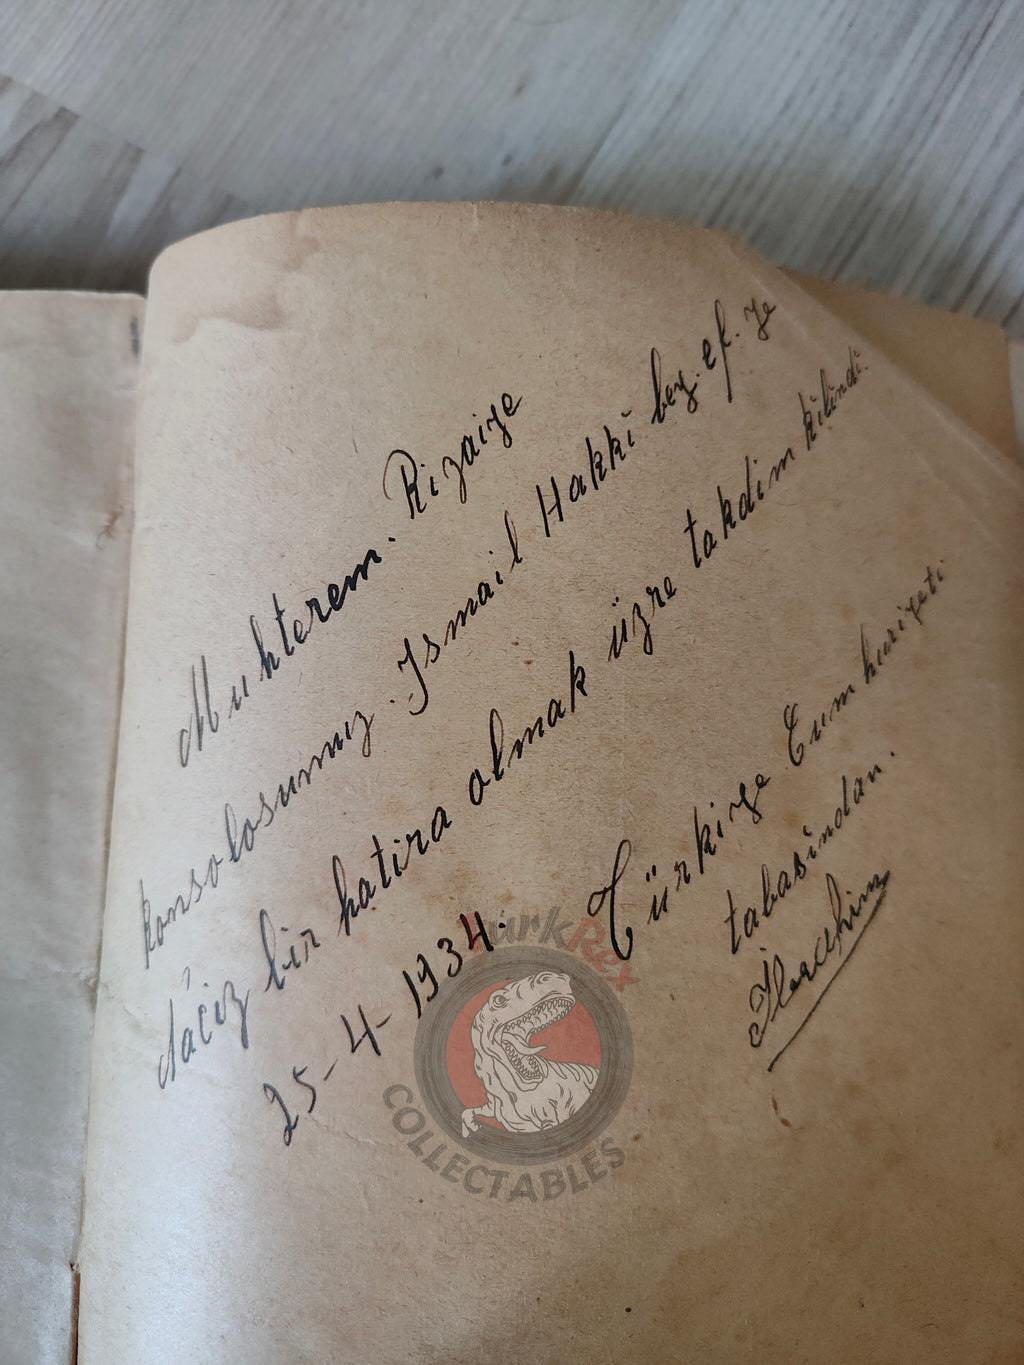 Muhterem. Rizaiye
konsolosumuz. Ismail Hakki bey. ef. ye
Náciz bir hatira olmak üzre takdim kilindi.
25-4-1934.
Türkiye Cumhuriyeti
tabasindan.
TurkRex
COLLECTABLES